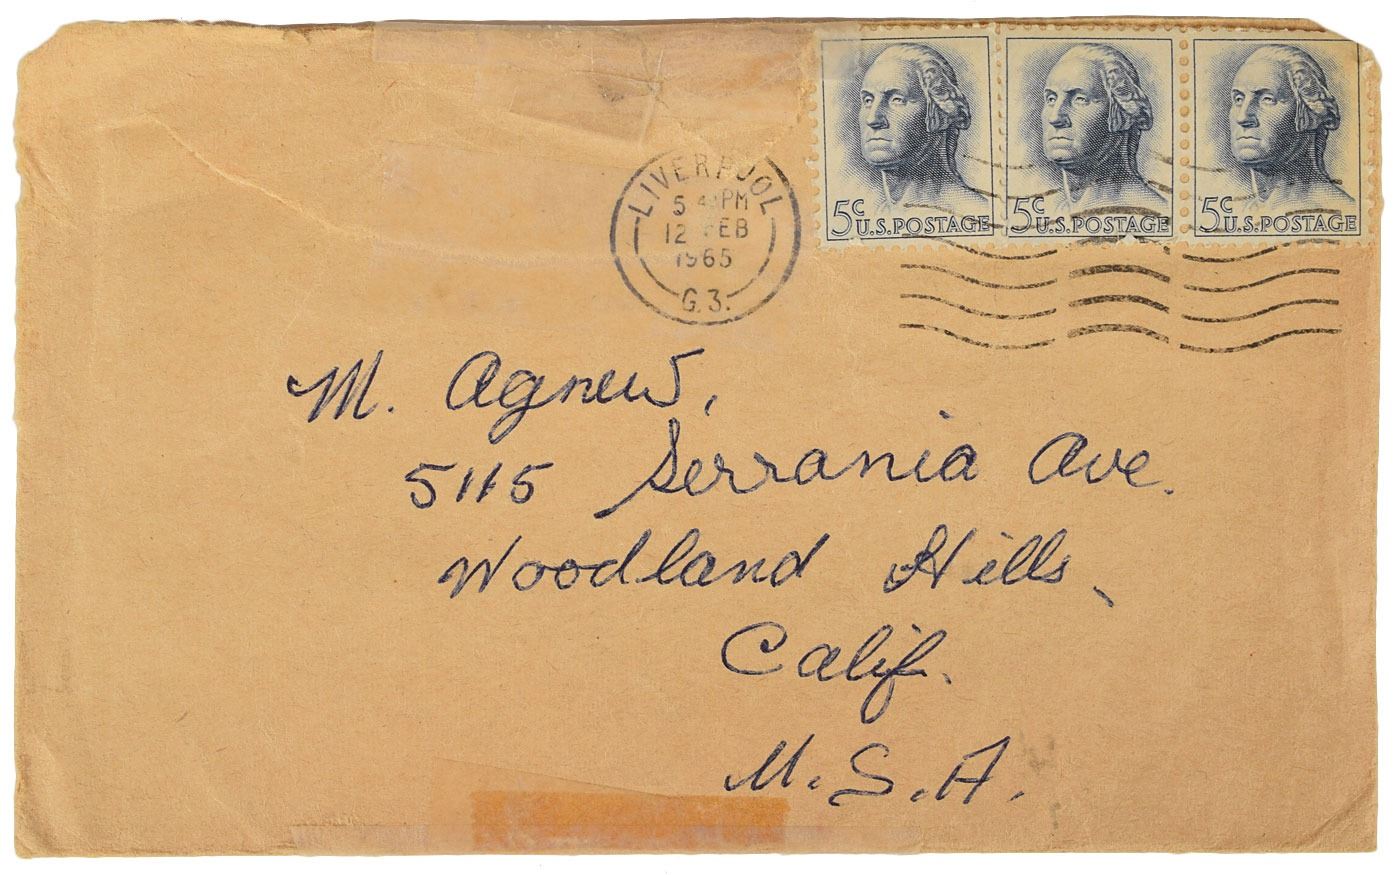 LIVERPOOL
PM
12 FEB
1965
G.3.
5c U.S.POSTAGE
5c U.S.POSTAGE
5c U.S.POSTAGE
M. Agnew,
5115 Serrania Ave.
Woodland Hills,
Calif.
U.S.A.